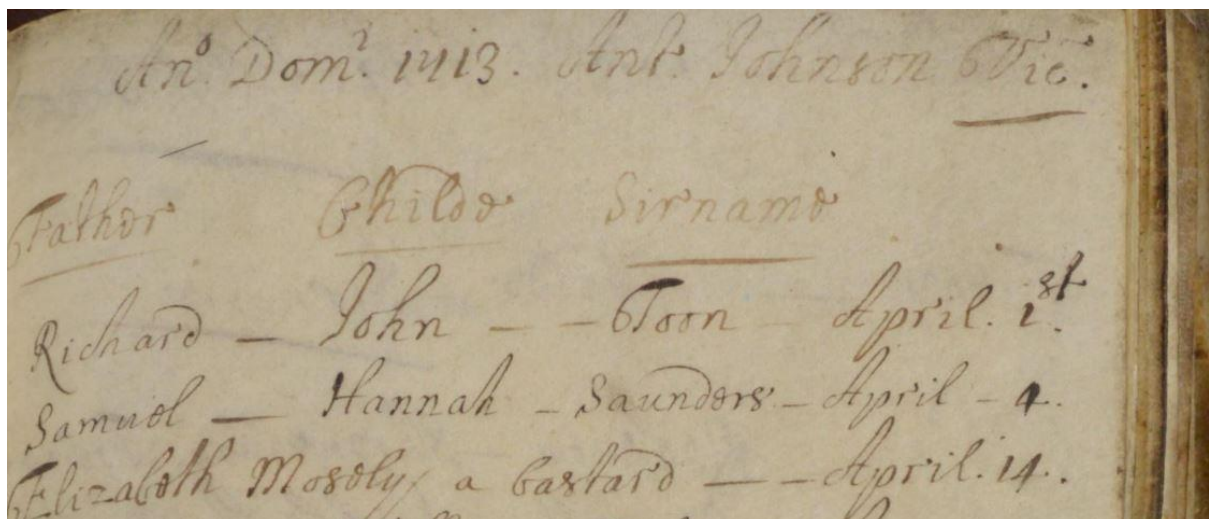 An⁰. Dom⁠ⁱ. 1713. Ant. Johnson Vic.
Father Childe Sirname
Richard — John — — Toon — April. 1st.
Samuel — Hannah — Saunders — April — 4.
Elizabeth Mosely, a bastard — — April. 14.